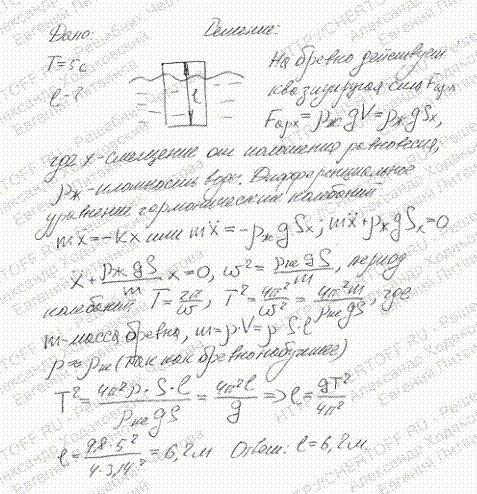 Дано:
Решение:
T=5с
l-?
l
На бревно действует
квазиупругая сила Fарх
Fарх=ρж gV=ρж gSx,
где x-смещение от положения равновесия,
ρж-плотность воды. Дифференциальное
уравнение гармонических колебаний
mẍ=-kx или mẍ=-ρж gSx; mẍ+ρж gSx=0
ẍ+ρж gS/m x=0, ω²=ρж gS/m, период
колебаний T=2π/ω, T²=4π²/ω²=4π²m/ρж gS, где
m-масса бревна, m=ρ·V=ρ·S·l
ρ≈ρж (так как бревно набухшее)
T²=4π²ρ·S·l/ρж gS=4π²l/g => l=gT²/4π²
l=9,8·5²/4·3,14²=6,2м Ответ: l=6,2м.